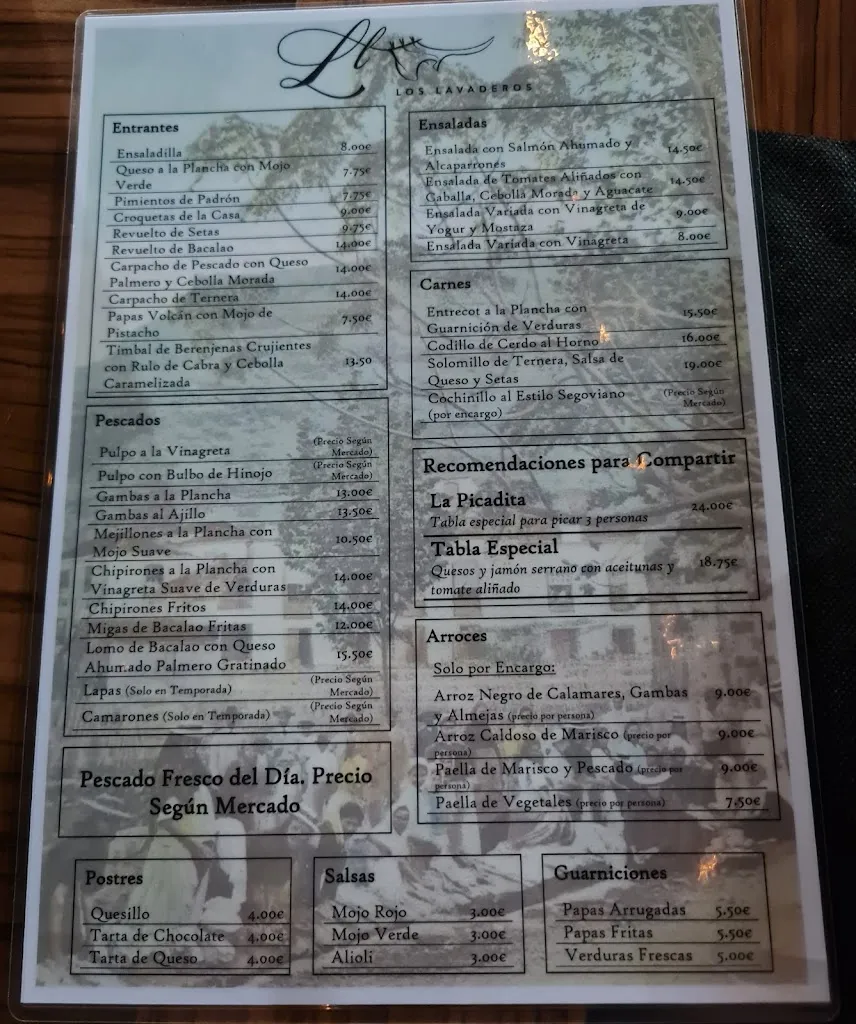 Ll
LOS LAVADEROS
Entrantes
Ensaladilla 8.00€
Queso a la Plancha con Mojo
Verde 7.75€
Pimientos de Padrón 7.75€
Croquetas de la Casa 9.00€
Revuelto de Setas 9.75€
Revuelto de Bacalao 14.00€
Carpacho de Pescado con Queso
Palmero y Cebolla Morada 14.00€
Carpacho de Ternera 14.00€
Papas Volcán con Mojo de
Pistacho 7.50€
Timbal de Berenjenas Crujientes
con Rulo de Cabra y Cebolla 13.50
Caramelizada
Pescados
Pulpo a la Vinagreta (Precio Según
Mercado)
Pulpo con Bulbo de Hinojo (Precio Según
Mercado)
Gambas a la Plancha 13.00€
Gambas al Ajillo 13.50€
Mejillones a la Plancha con
Mojo Suave 10.50€
Chipirones a la Plancha con
Vinagreta Suave de Verduras 14.00€
Chipirones Fritos 14.00€
Migas de Bacalao Fritas 12.00€
Lomo de Bacalao con Queso
Ahumado Palmero Gratinado 15.50€
Lapas (Solo en Temporada) (Precio Según
Mercado)
Camarones (Solo en Temporada) (Precio Según
Mercado)
Pescado Fresco del Día. Precio
Según Mercado
Ensaladas
Ensalada con Salmón Ahumado y
Alcaparrones 14.50€
Ensalada de Tomates Aliñados con
Caballa, Cebolla Morada y Aguacate 14.50€
Ensalada Variada con Vinagreta de
Yogur y Mostaza 9.00€
Ensalada Variada con Vinagreta 8.00€
Carnes
Entrecot a la Plancha con
Guarnición de Verduras 15.50€
Codillo de Cerdo al Horno 16.00€
Solomillo de Ternera, Salsa de
Queso y Setas 19.00€
Cochinillo al Estilo Segoviano (Precio Según
(por encargo) Mercado)
Recomendaciones para Compartir
La Picadita 24.00€
Tabla especial para picar 3 personas
Tabla Especial
Quesos y jamón serrano con aceitunas y 18.75€
tomate aliñado
Arroces
Solo por Encargo:
Arroz Negro de Calamares, Gambas 9.00€
y Almejas (precio por persona)
Arroz Caldoso de Marisco (precio por 9.00€
persona)
Paella de Marisco y Pescado (precio por 9.00€
persona)
Paella de Vegetales (precio por persona) 7.50€
Postres
Quesillo 4.00€
Tarta de Chocolate 4.00€
Tarta de Queso 4.00€
Salsas
Mojo Rojo 3.00€
Mojo Verde 3.00€
Alioli 3.00€
Guarniciones
Papas Arrugadas 5.50€
Papas Fritas 5.50€
Verduras Frescas 5.00€